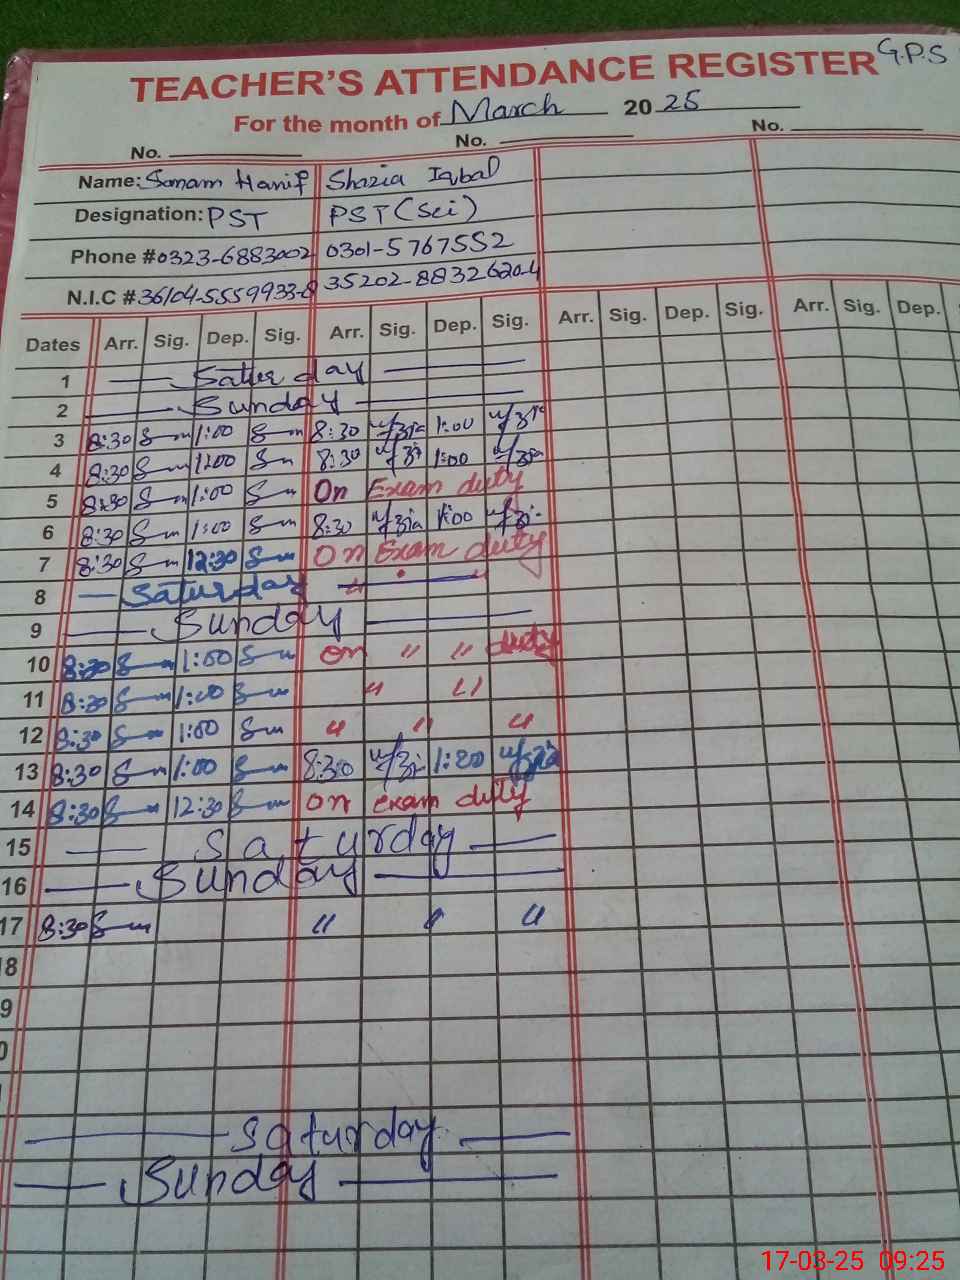 G.P.S
TEACHER'S ATTENDANCE REGISTER
For the month of March 2025
No. No. No.
Name: Sanam Hanif Shazia Iqbal
Designation: PST PST (Sci)
Phone # 0323-6883002 0301-5767552
N.I.C # 36104-5559933-8 35202-8832620-4
Dates Arr. Sig. Dep. Sig. Arr. Sig. Dep. Sig. Arr. Sig. Dep. Sig. Arr. Sig. Dep.
1 Saturday
2 Sunday
3 8:30 1:00 8:30 1:00
4 8:30 1:00 8:30 1:00
5 8:30 1:00 On Exam duty
6 8:30 1:00 8:30 1:00
7 8:30 12:30 On Exam duty
8 Saturday "
9 Sunday
10 8:30 1:00 on " " duty
11 8:30 1:00 " "
12 8:30 1:00 " " "
13 8:30 1:00 8:30
14 8:30 12:30 on exam duty
15 Saturday
16 Sunday
17 8:30 " " "
18
9
0
Saturday
Sunday
17-03-25 09:25